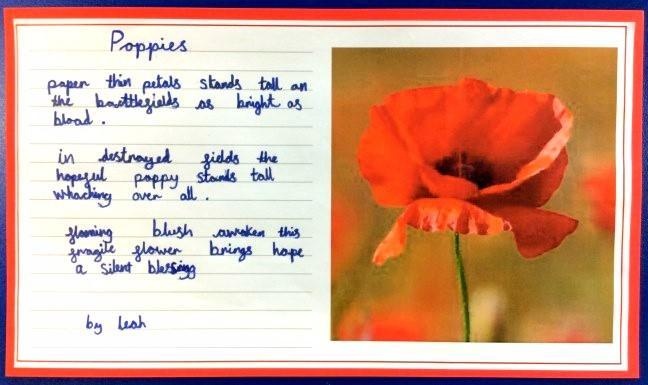 Poppies
paper thin petals stands tall on
the battlegields as bright as
blood.
in destroyed fields the
hopeful poppy stands tall
whaching over all.
blush awaken this
fragile flower brings hope
a silent blessing
by Leah